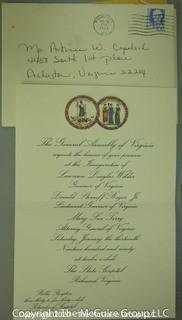 Mr. Antoine W. Copeland
4457 South 1st place
Arlington, Virginia 22204
The General Assembly of Virginia
requests the honor of your presence
at the Inauguration of
Lawrence Douglas Wilder
Governor of Virginia
Donald Sternoff Beyer Jr.
Lieutenant Governor of Virginia
Mary Sue Terry
Attorney General of Virginia
Saturday, January the thirteenth
Nineteen hundred and ninety
at twelve o'clock
The State Capitol
Richmond, Virginia
Public Reception
Copyright - The McGuire Group LLC